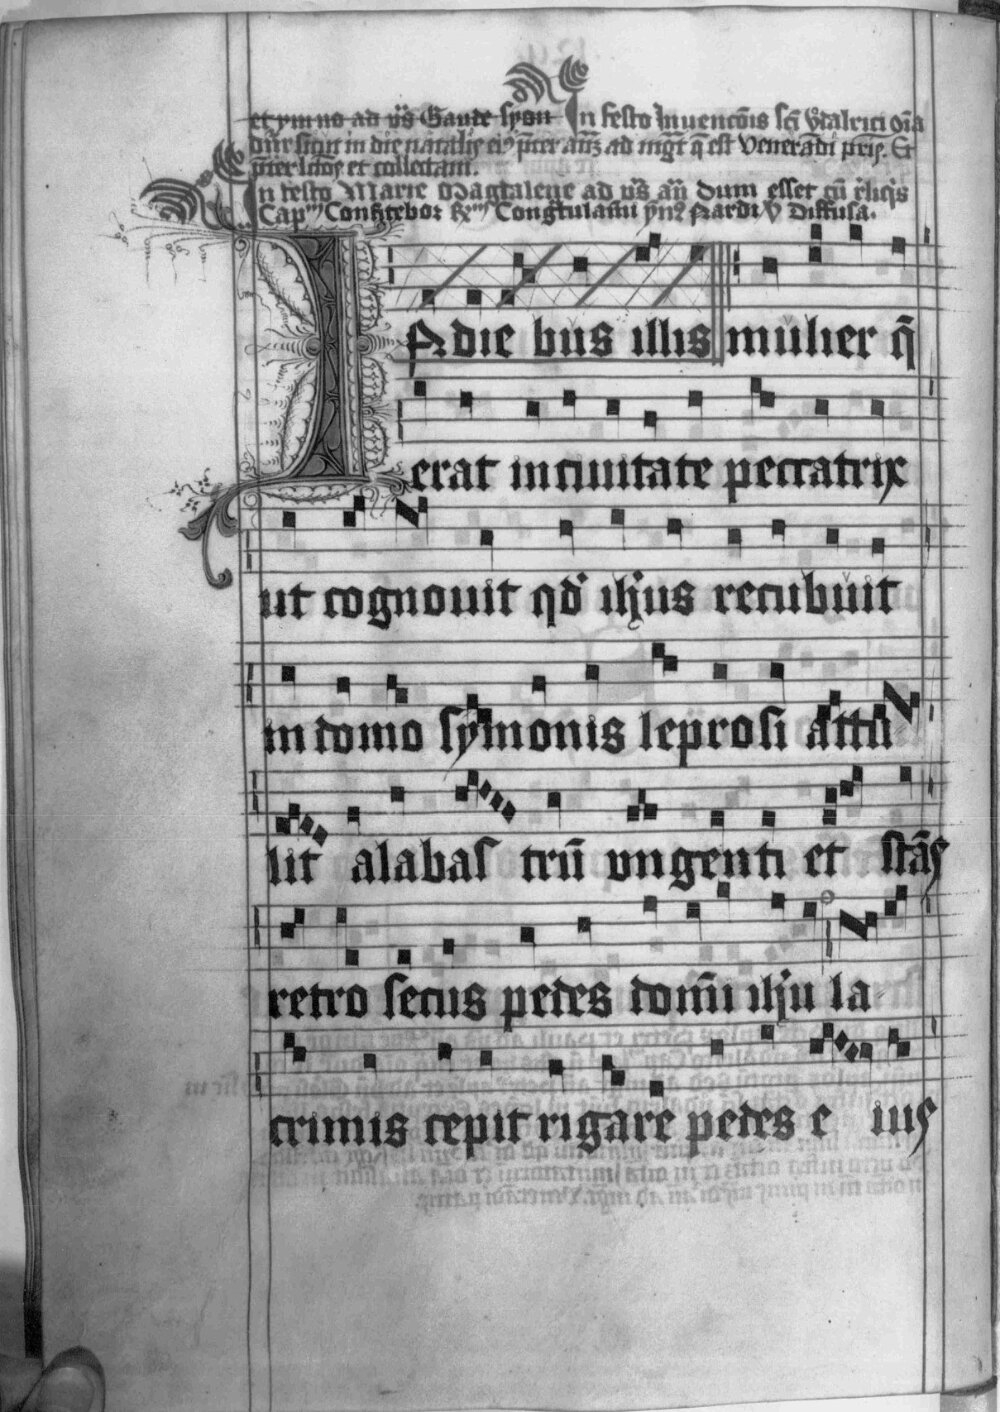 et ymno ad vs̃ Gaude syon In festo Inuencõis scĩ Vdalrici oĩa
dñr sicut in die natalis eiꝰ p̃ter añz ad mg̃t q̃ est Venerãdi pris̃. Et
p̃ter ct collectam.
In festo Marie Magtalene ad vs̃ añ dum esset cũ
Cap Confitebor Cong̃tulamī Nardi V Diffusa.
IN die bus illis mulier q̃
erat in ciuitate peccatrix
ut cognouit qd' ihꝰus recubuit
in domo symonis leprosi attu
lit alabas trũ vngenti et stãs
retro secus pedes domĩ ihꝰu la-
crimis cepit rigare pedes e ius